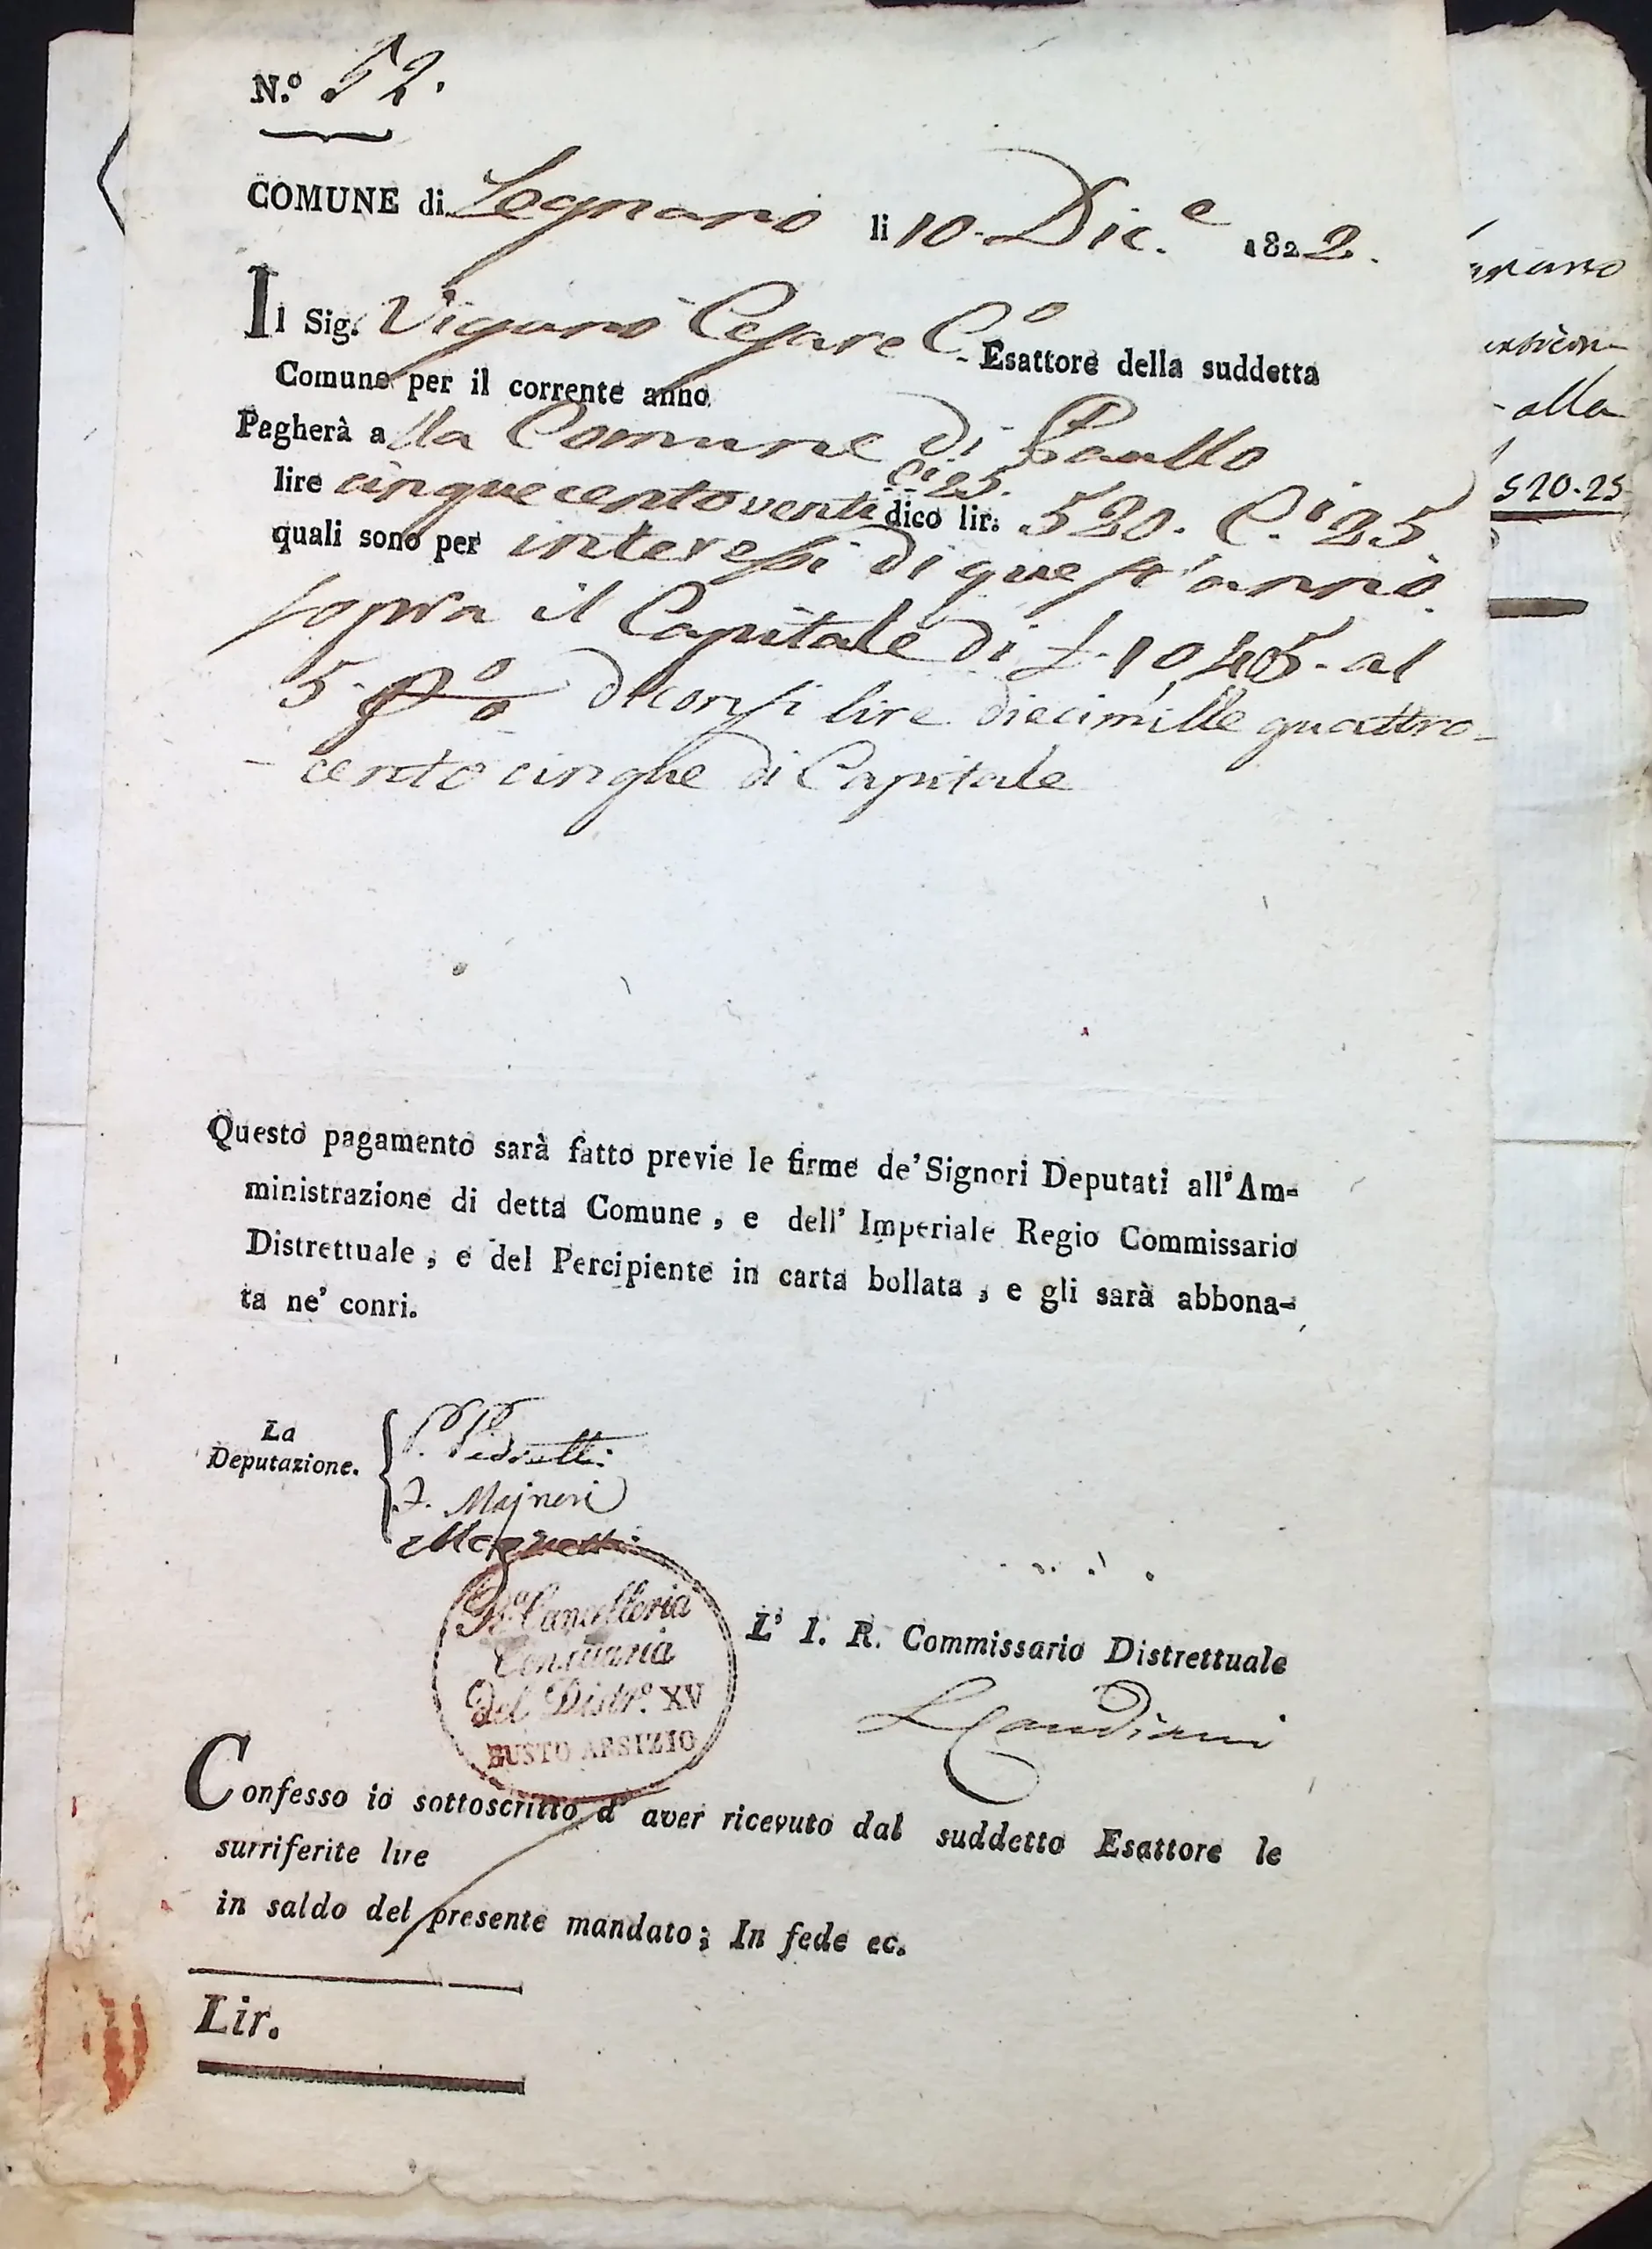 N.º 52.
COMUNE di Legnano li 10. Dic.e 1822.
Il Sig. Viganò Cesare C.o Esattore della suddetta
Comune per il corrente anno
Pagherà alla Comune di Paullo
lire cinquecentoventi Ci 25. dico lir. 520. C.i 25.
quali sono per interessi di quest'anno
sopra il Capitale di £. 10,405. al
5. P.o/o diconsi lire diecimille quattro-
- cento cinque di Capitale
Questo pagamento sarà fatto previe le firme de' Signori Deputati all' Am-
ministrazione di detta Comune, e dell' Imperiale Regio Commissario
Distrettuale, e del Percipiente in carta bollata, e gli sarà abbona-
ta ne' conri.
La
Deputazione.
P. Pedretti
F. Majneri
L' I. R. Commissario Distrettuale
R.a Cancelleria
Censuaria
Del Distr.o XV
BUSTO ARSIZIO
Confesso io sottoscritto d' aver ricevuto dal suddetto Esattore le
surriferite lire
in saldo del presente mandato; In fede ec.
Lir.
alla
520.25